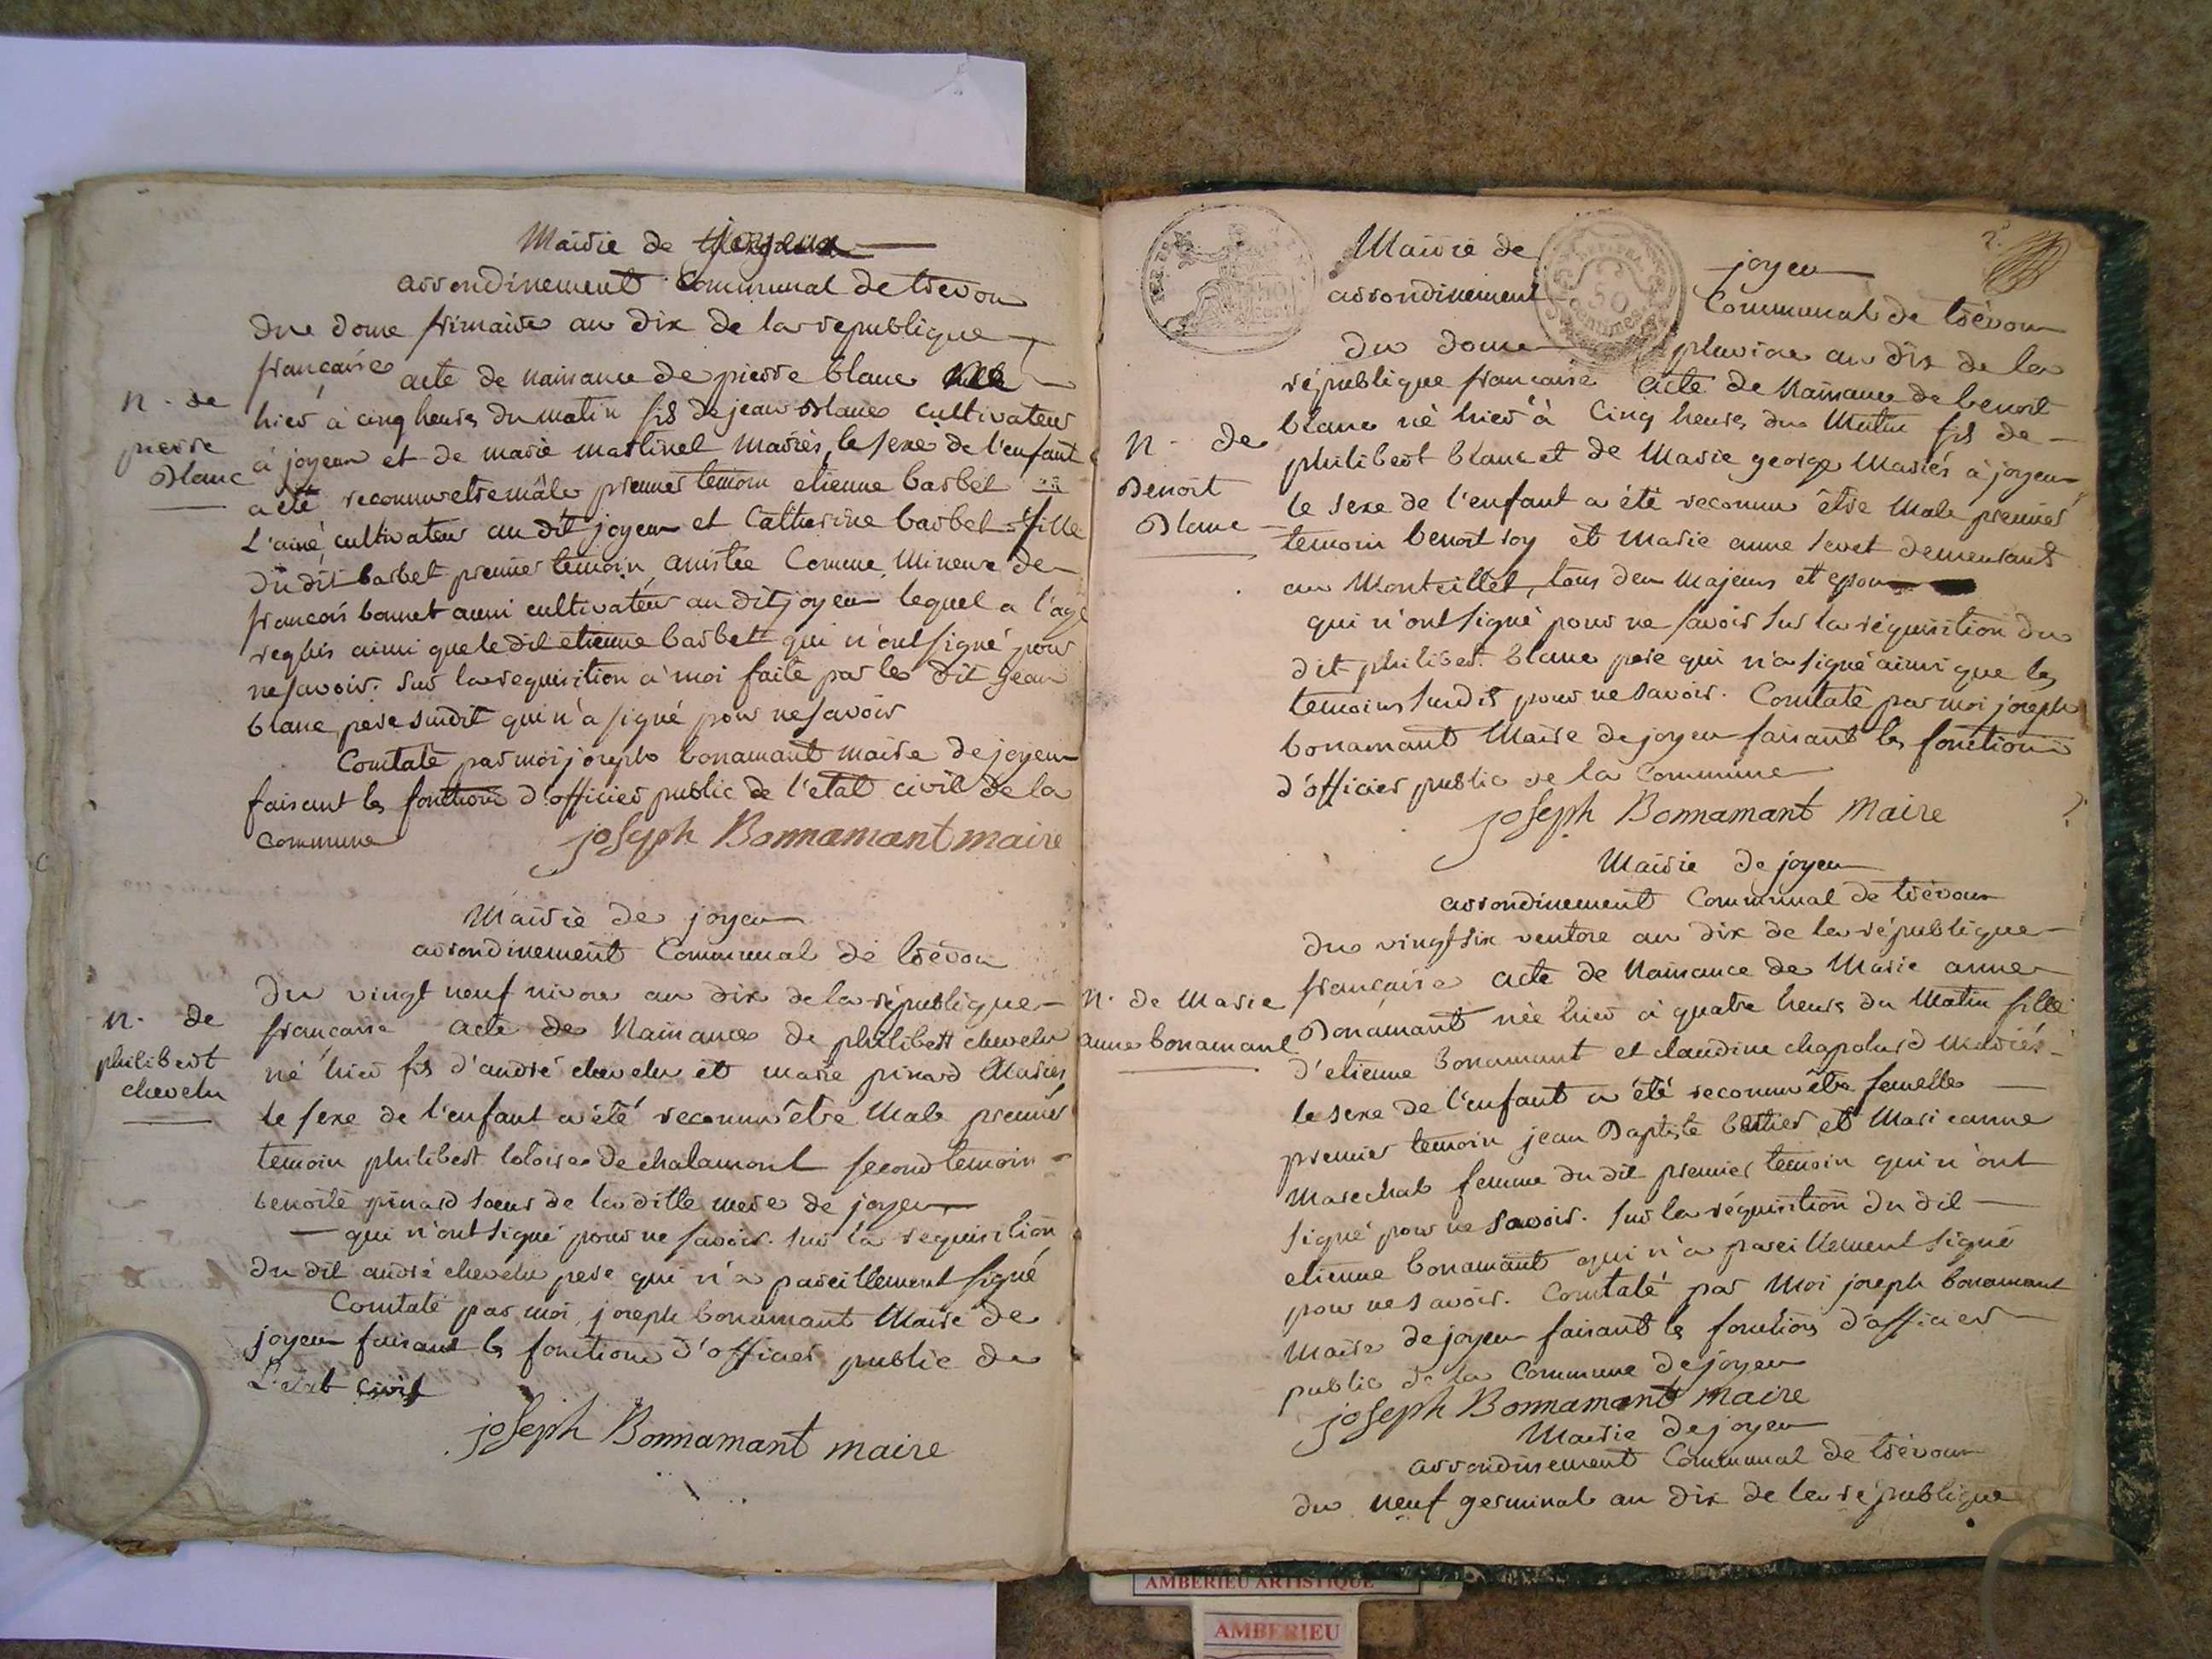 Mairie de joyeux
arrondinement Communal de trevou
du douze frimaire an dix de la republique
francaise acte de naissance de pierre blanc
n. de
pierre
Blanc
hier à cinq heures du matin fils de jean Blanc cultivateur
à joyeux et de marie martinet mariés, le sexe de l'enfant
a été reconnu etre mâle premier temoin etienne barbet
L'ainé cultivateur au dit joyeux et Catherine barbet fille
du dit barbet premier temoin assistée Comme Mineure de
francois bonnet aussi cultivateur au dit joyeux lequel a l'age
requis ainsi que le dit etienne barbet qui n'ont signé pour
ne savoir. sur la requisition a moi faite par le dit jean
blanc pere susdit qui n'a signé pour ne savoir
Constaté par moi joseph bonamant maire de joyeux
faisant les fonctions d'officier public de l'etat civil de la
Commune
joseph Bonnamant maire
Mairie de joyeux
arrondinement Communal de trevou
n. de
philibert
chevelu
Du vingt neuf nivose an dix de la république
francaise acte de Naissance de philibert chevelu
né hier fils d'andré chevelu et marie pinard Mariés
le sexe de l'enfant a été reconnu être Male premier
temoin philibert de chalamont second temoin
benoite pinard soeur de la ditte mere de joyeux
qui n'ont signé pour ne savoir. sur la requisition
du dit andré chevelu pere qui n'a pareillement signé
Constaté par moi joseph bonamant Maire de
joyeux faisant les fonctions d'officier public de
L'etat civil
joseph Bonnamant maire
Mairie de joyeu
arrondinement Communal de trévoux
50
Centimes
du douze pluviose an dix de la
république francaise acte de Naissance de benoit
n. de
Benoit
Blanc
blanc né hier à Cinq heures du Matin fils de
philibert blanc et de Marie george Mariés à joyeux
le sexe de l'enfant a été reconnu être Male premier
temoin benoit roy et Marie anne sevet demeurant
au Montellier, tous deux Majeurs et epoux
qui n'ont signé pour ne savoir sur la réquisition du
dit philibert blanc pere qui n'a signé ainsi que les
temoins susdits pour ne savoir. Constaté par moi joseph
bonamant Maire de joyeux faisant les fonctions
d'officier public de la Commune
joseph Bonnamant Maire
Mairie de joyeu
arrondinement Communal de trévoux
du vingt six ventose an dix de la république
n. de Marie
anne bonamant
francaise acte de Naissance de Marie anne
Bonamant née hier à quatre heures du Matin fille
d'etienne bonamant et claudine chapolard Mariés
le sexe de l'enfant a été reconnu être femelle
premier temoin jean Baptiste et Marieanne
Marechal femme du dit premier temoin qui n'ont
signé pour ne savoir. sur la réquisition du dit
etienne bonamant qui n'a pareillement signé
pour ne savoir. Constaté par Moi joseph bonamant
Maire de joyeux faisant les fonctions d'officier
public de la Commune de joyeu
joseph Bonnamant maire
Mairie de joyeu
arrondissement Communal de trévoux
du neuf germinal an dix de la république
AMBERIEU ARTISTIQUE
AMBERIEU